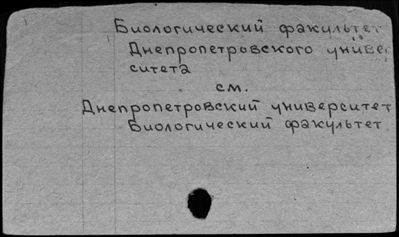 Биологический факультет
Днепропетровского универ
ситета
см.
Днепропетровский университет
Биологический факультет.